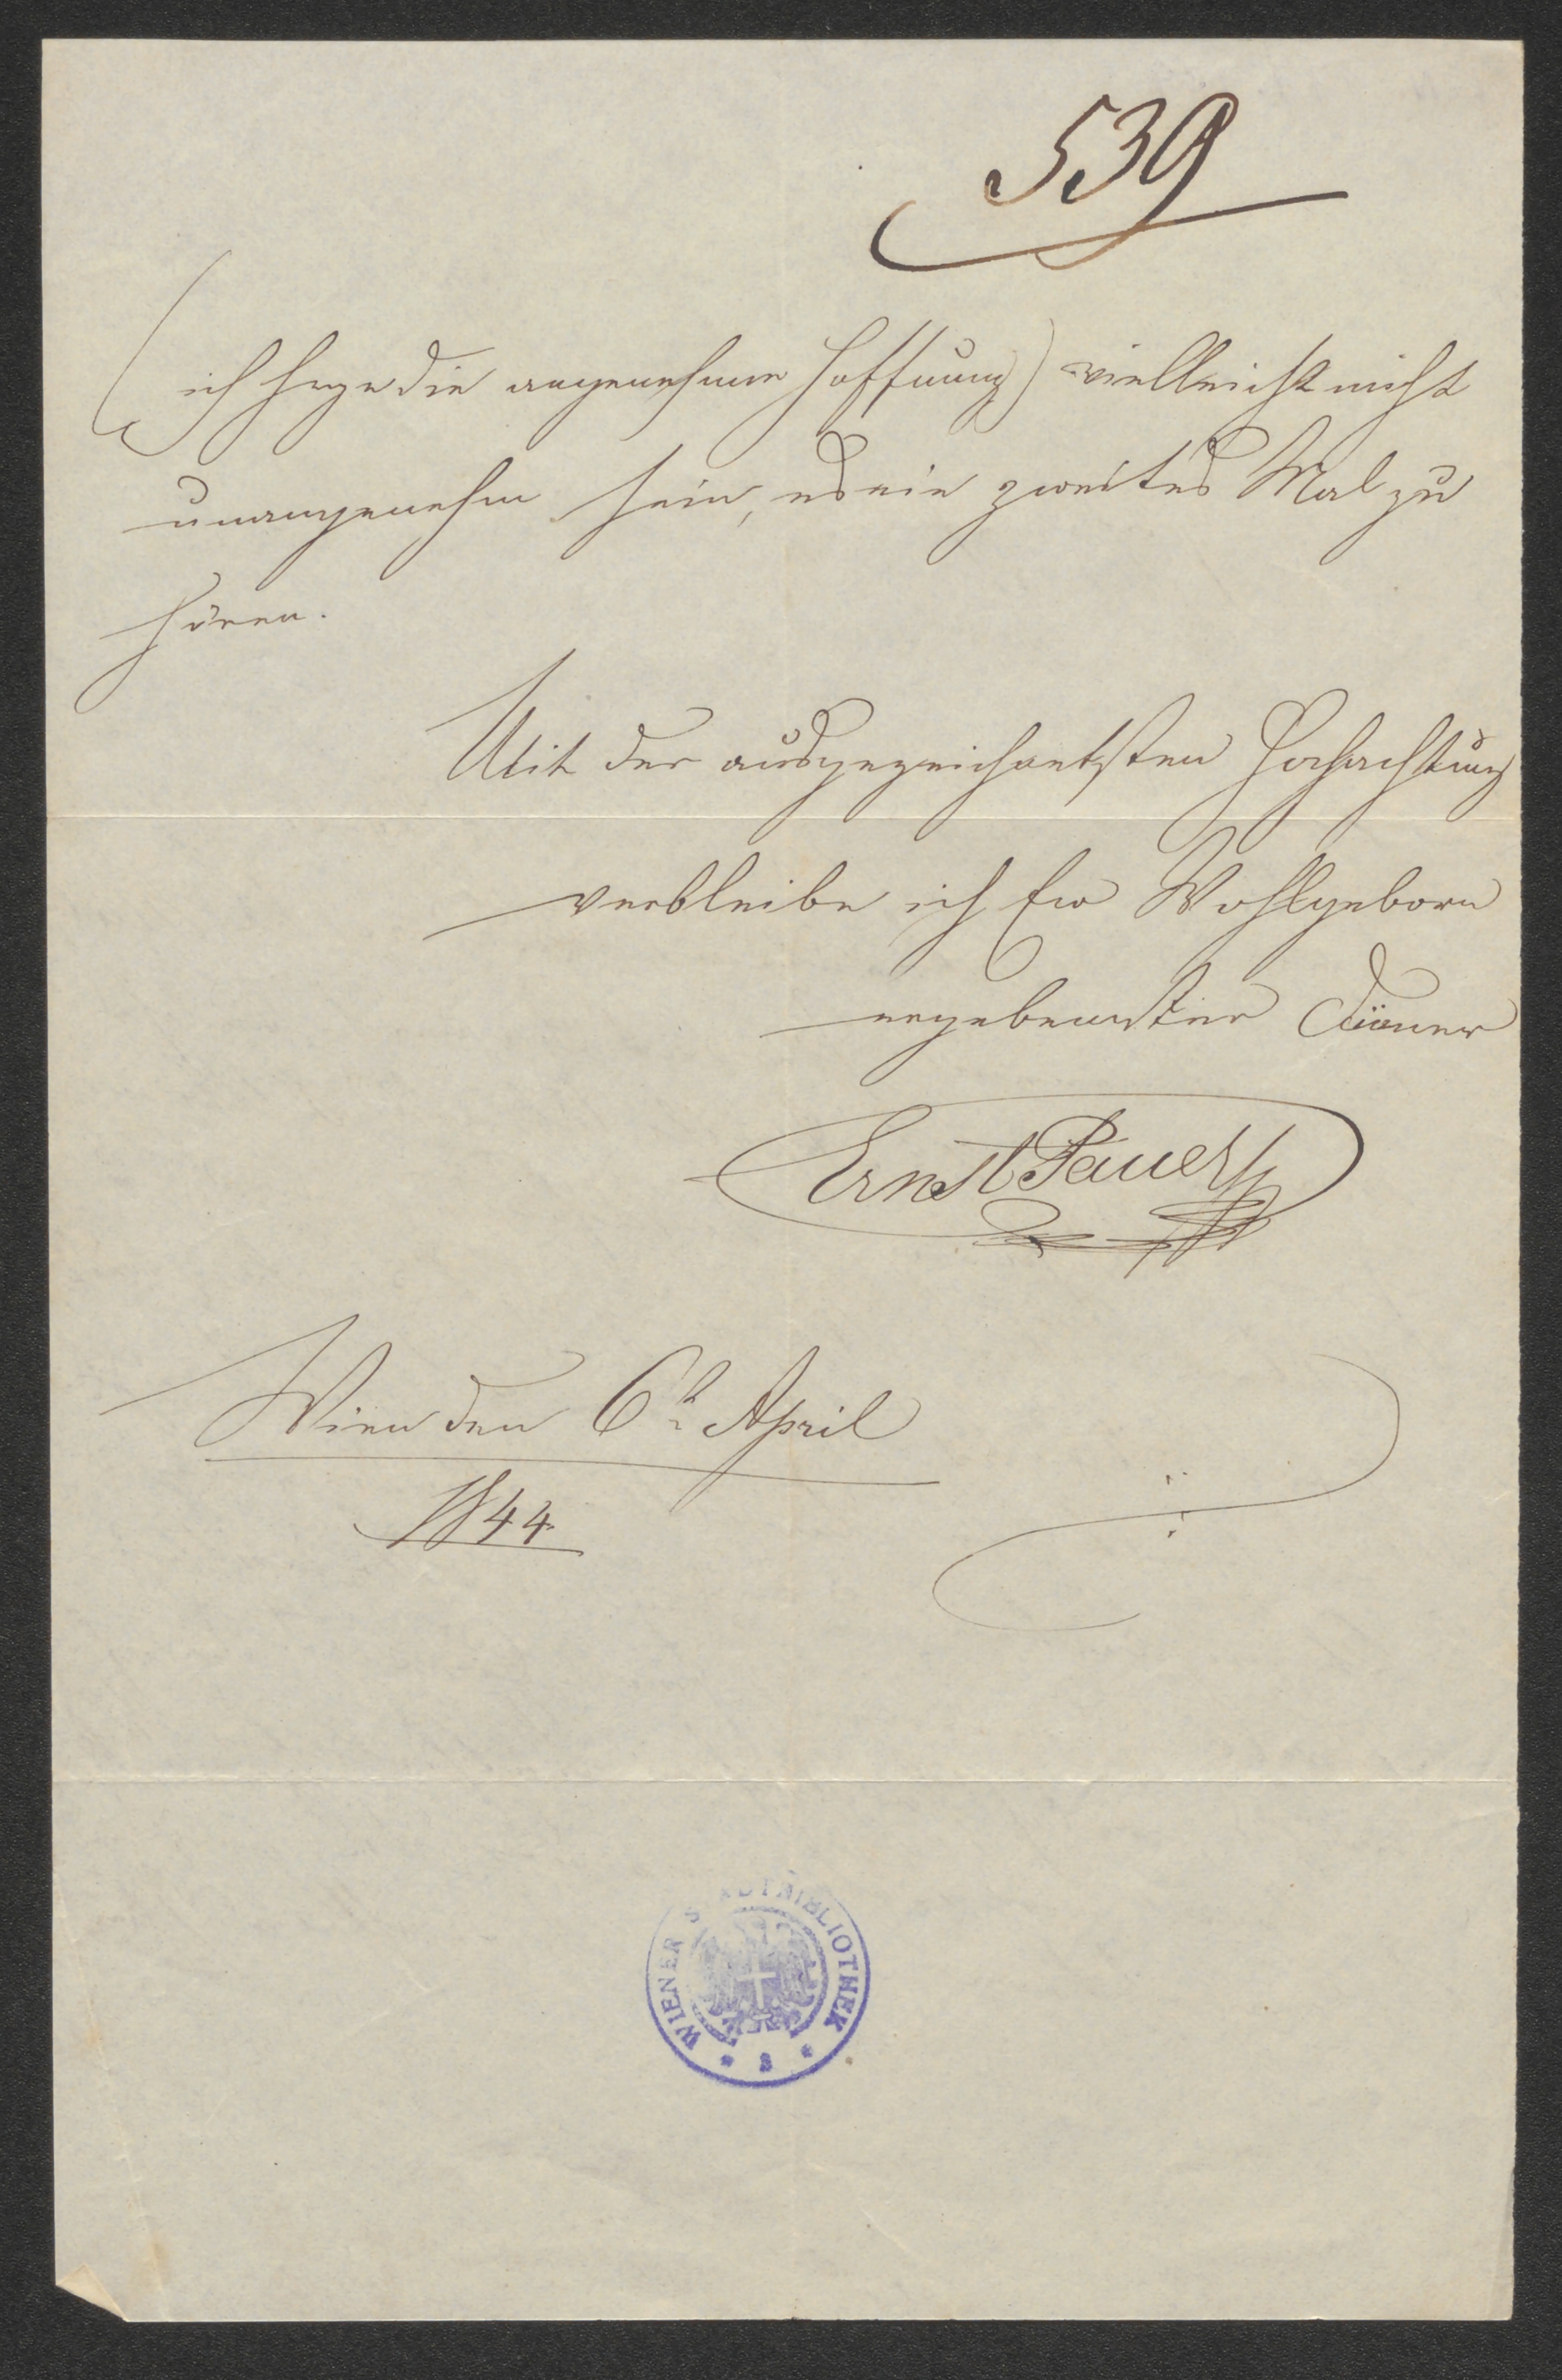 539
(ich hege die angenehme Hoffnung) vielleicht nicht
unangenehm sein, es ein zweites Mal zu
hören.
Mit der ausgezeichnetsten Hochachtung
verbleibe ich Euer Wohlgeborn
ergebenster Diener
Ernst Pauer
Wien den 6t April
1844
WIENER STADTBIBLIOTHEK